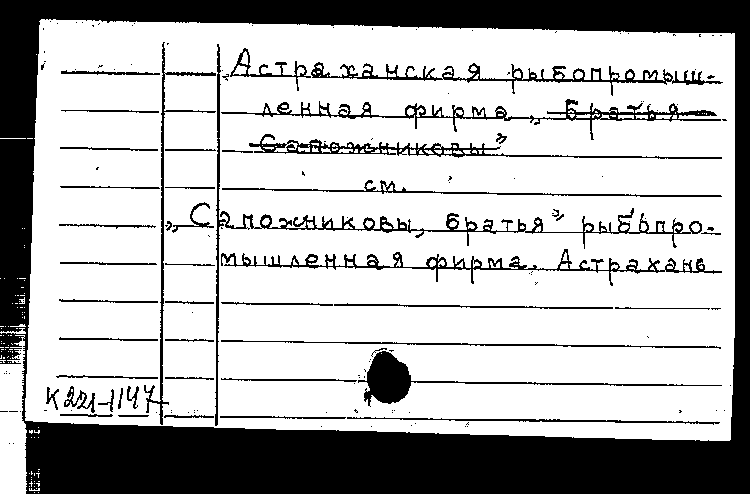 Астраханская рыбопромыш-
ленная фирма „Братья
Сапожниковы”
см.
„Сапожниковы, братья” рыбопро-
мышленная фирма. Астрахань
К221-1147